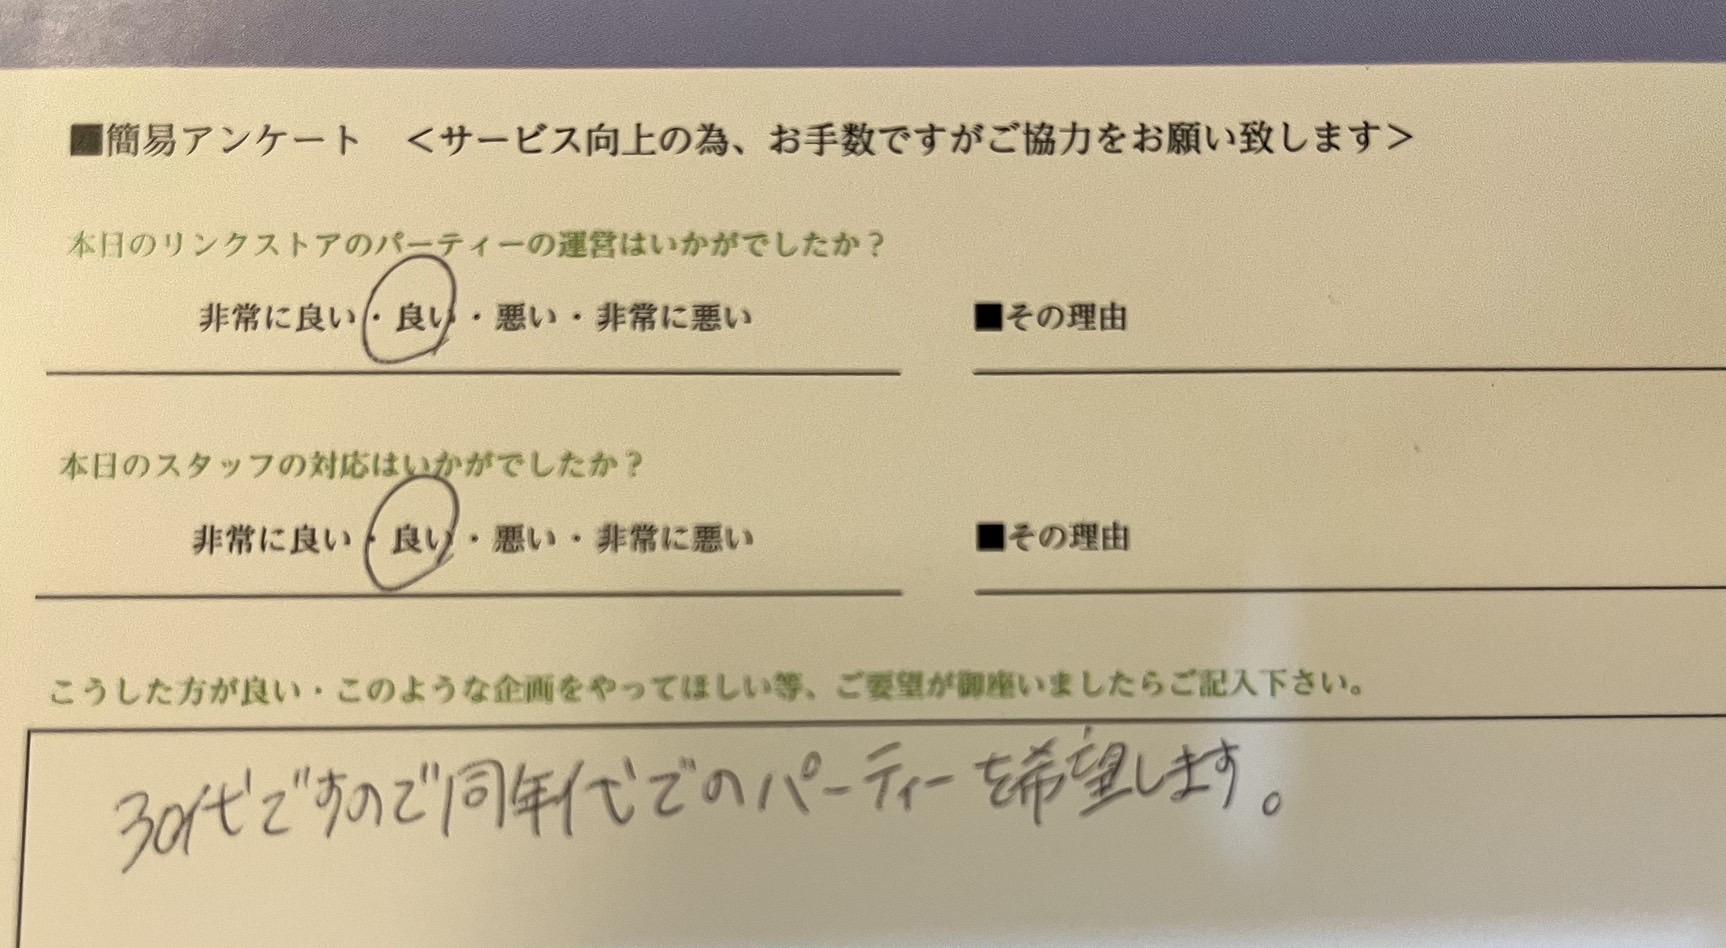 ■簡易アンケート　＜サービス向上の為、お手数ですがご協力をお願い致します＞
本日のリンクストアのパーティーの運営はいかがでしたか？
非常に良い・良い・悪い・非常に悪い　■その理由
本日のスタッフの対応はいかがでしたか？
非常に良い・良い・悪い・非常に悪い　■その理由
こうした方が良い・このような企画をやってほしい等、ご要望が御座いましたらご記入下さい。
30代ですので同年代でのパーティーを希望します。